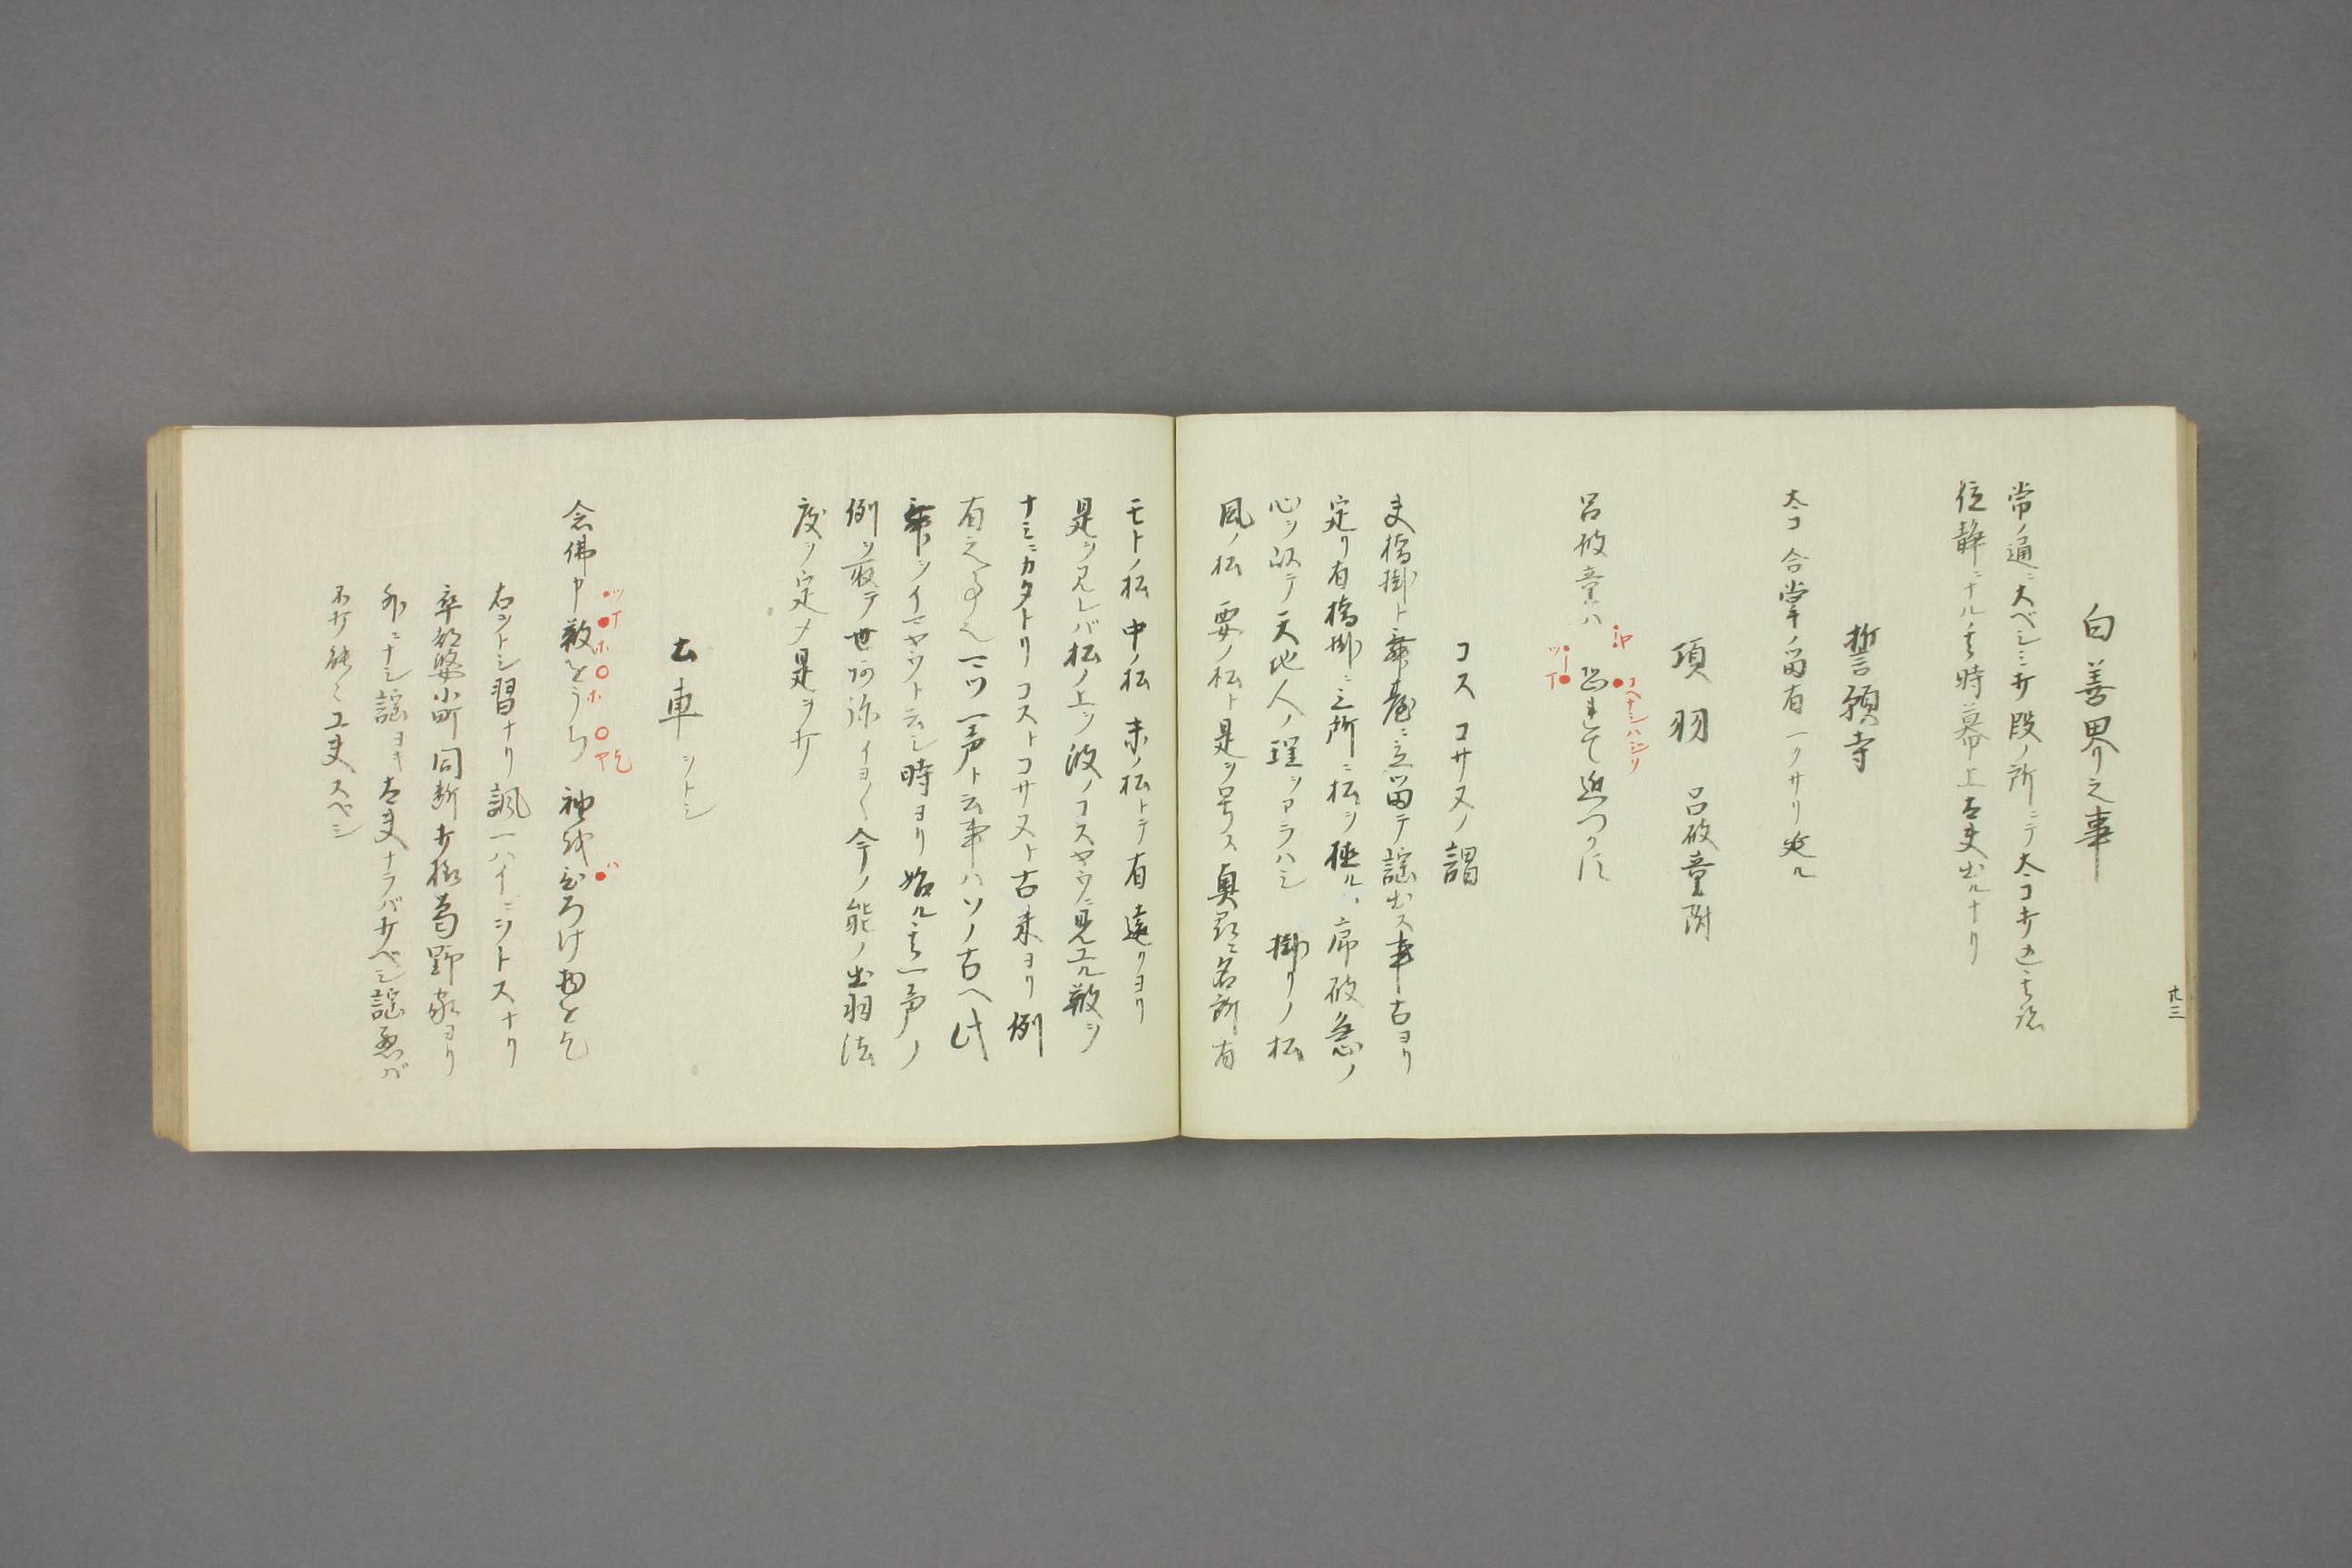 白善界之事
常ノ通ニ大ベシミ打段ノ所ニテ太コ打込其後
位静ニナル其時幕上太夫出ルナリ
誓願寺
太コ合掌ノ留有一クサリ延ル
項羽 呂破童附
呂破童ハ 恐れて近つかに
コヘナシハジリ
コスコサヌノ謂
夫橋掛ト舞臺ニ立留テ謡出ス事古ヨリ
定リ有橋掛ニ三所ニ松ヲ極ル、序破急ノ
心ヲ以テ天地人ノ理ヲアラハシ 掛リノ松
風ノ松 要ノ松ト是ヲ号ス奥尋ニ名所有
モトノ松 中ノ松 末ノ松トテ有遠クヨリ
是ヲ見レバ松ノ上ヲ波ノコスヤウニ見エル敷ヲ
ナミニカタトリコストコサヌト古来ヨリ例
有之事也一ツ一声ト云事ハソノ古ヘ此
舞ヲイマヤウト云シ時ヨリ始ル其一声ノ
例ヲ取テ世阿弥イヨ〱今ノ能ノ出羽法
度ヲ定メ是ヲ打
土車 シトシ
念佛申敷をうち 袖を
ツイ ホ ホ ヤ
ハ
右シトシ習ナリ諷一ハイニシトスナリ
卒都婆小町同断打様葛野家ヨリ
外ニナシ謡ヨキ太夫ナラバ打ベシ謡悪バ
不打能〱工夫スベシ
廿三